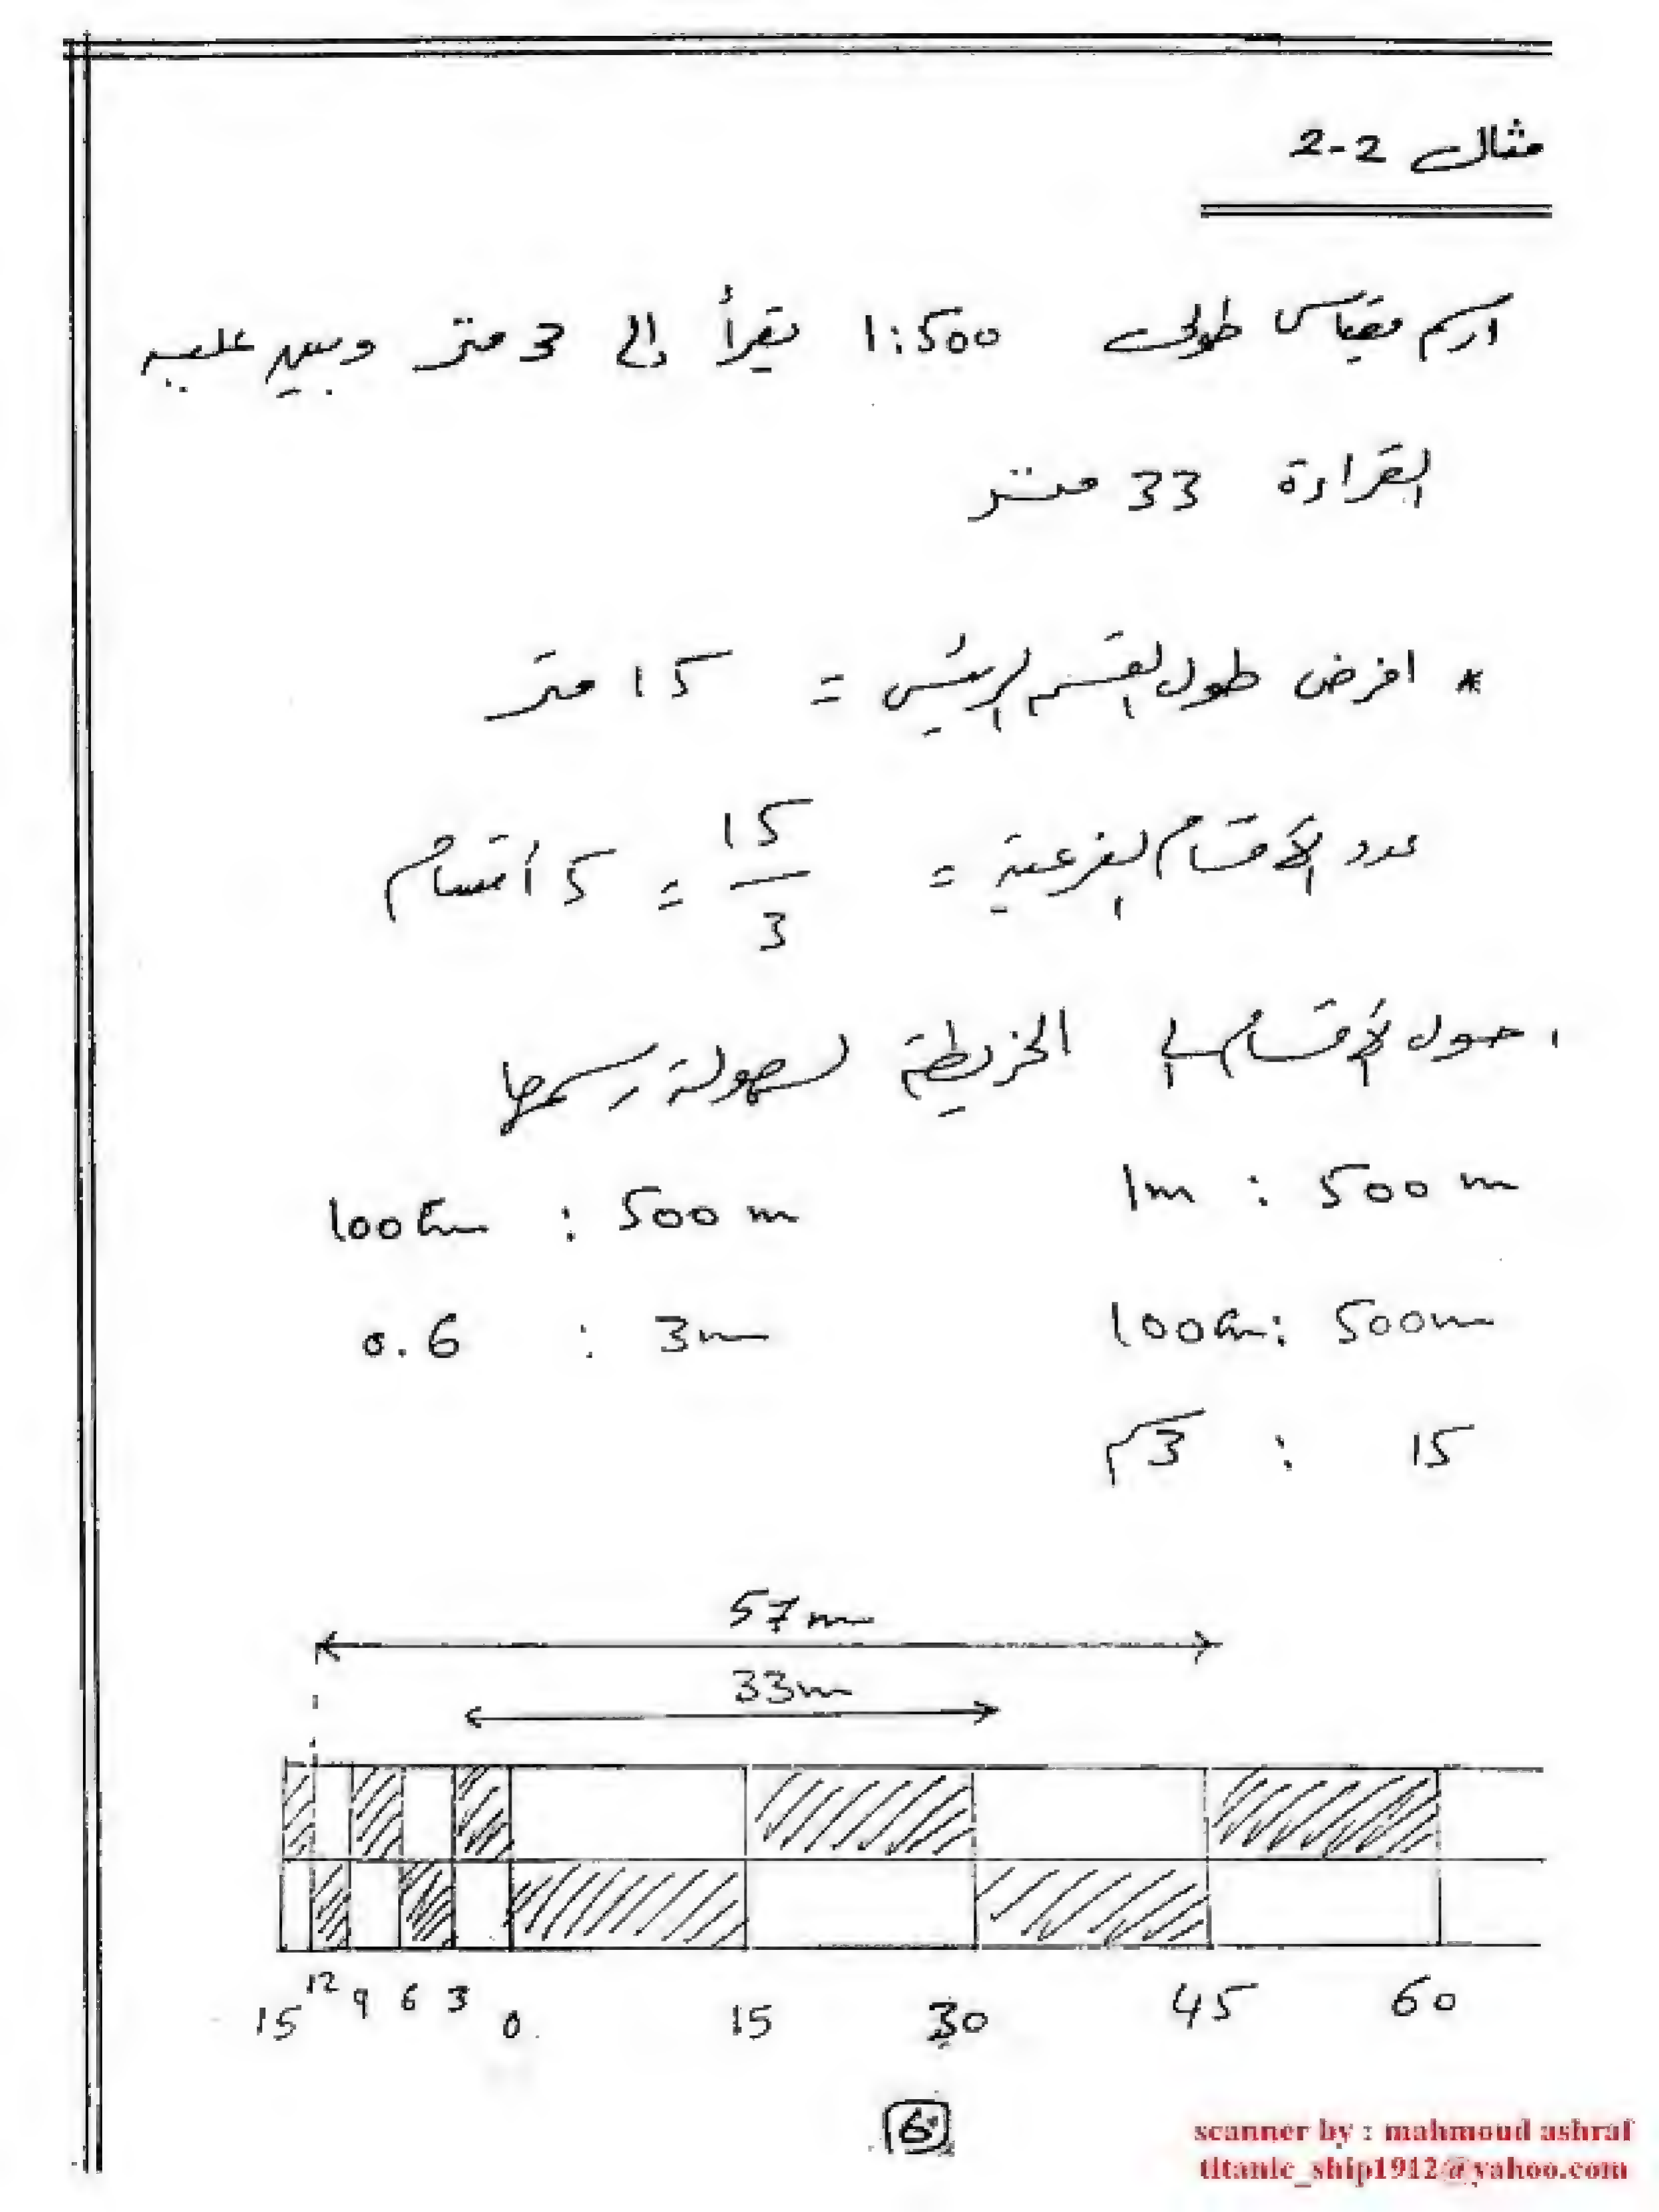 مثال 2-2
ارسم مقياس طولى 1:500 يقرأ إلى 3 متر وبين عليه
القراءة 33 متر
* افرض طول القسم الرئيسى = 15 متر
عدد الأقسام الفرعية = 15/3 = 5 أقسام
، حول الأقسام إلى الخريطة لسهولة رسمها
1m : 500 m
100cm : 500 m
100cm : 500m
0.6 : 3m
3سم : 15
57m
33m
15 12 9 6 3 0 15 30 45 60
6
scanner by : mahmoud ashraf
titanic_ship1912@yahoo.com